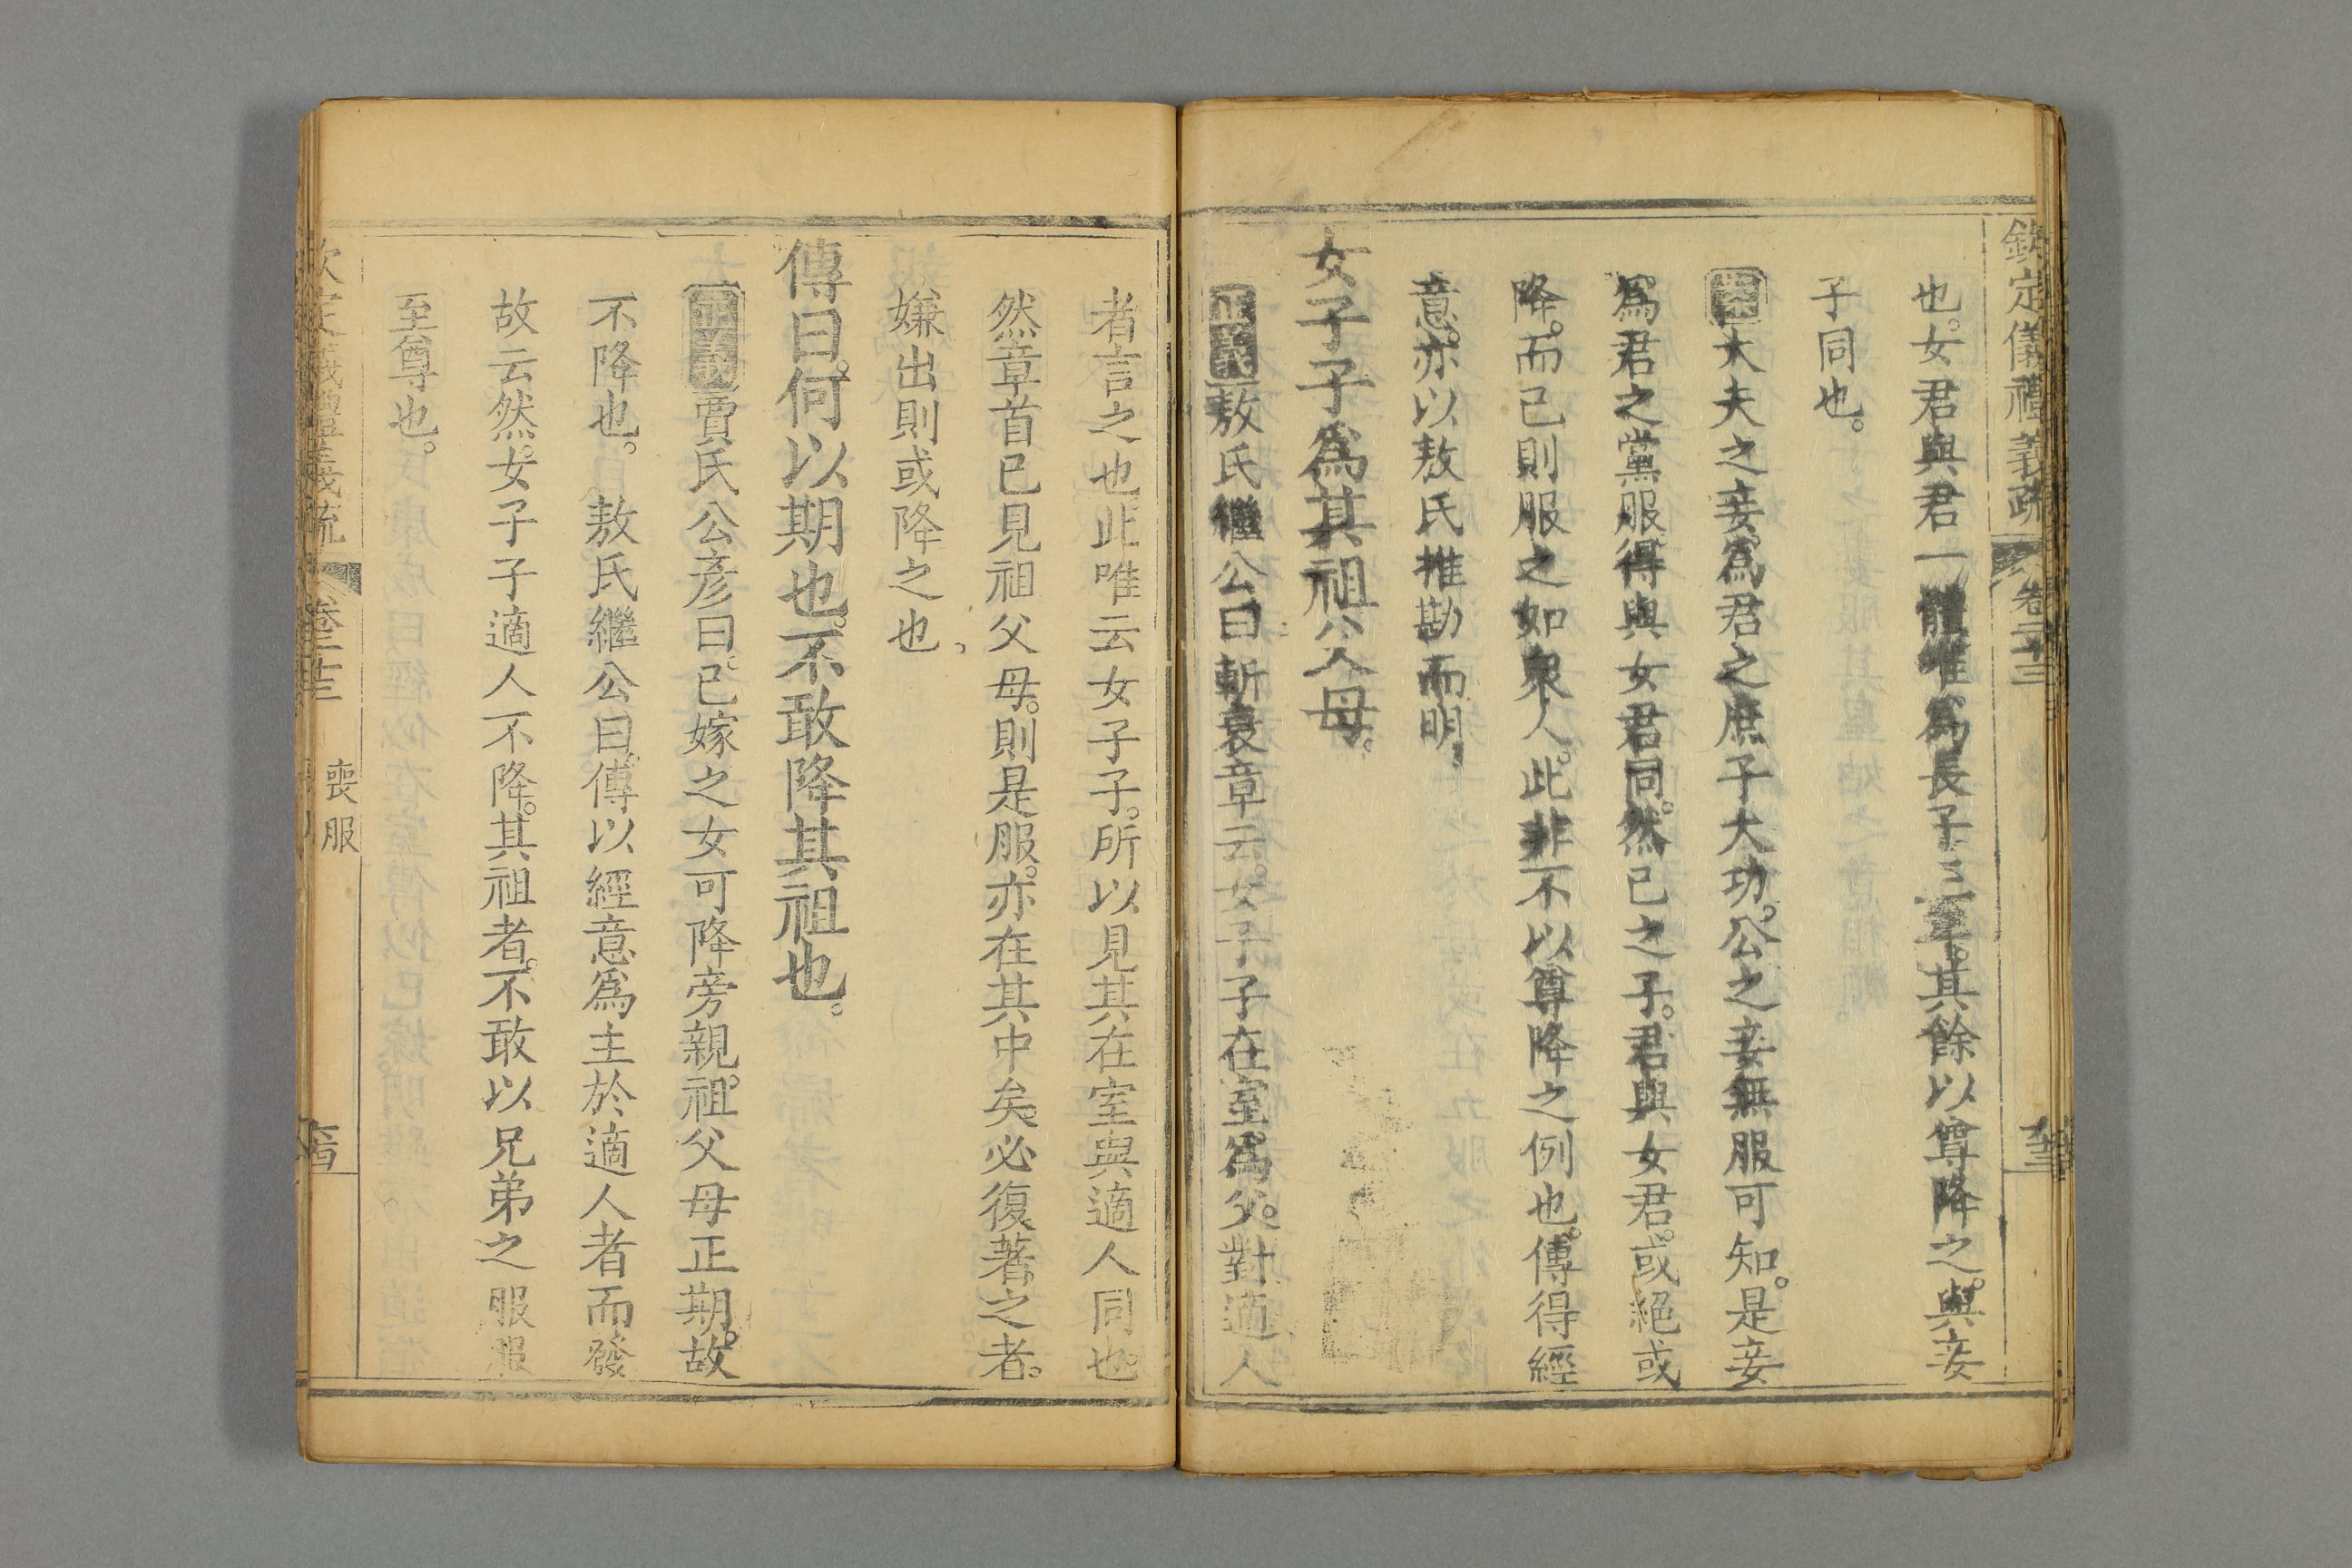 欽定儀禮義疏　卷二十三
也。女君與君一體唯爲長子三年。其餘以尊降之。與妾
子同也。
案大夫之妾。爲君之庶子大功。公之妾無服可知。是妾
爲君之黨服。得與女君同。然己之子。君與女君。或絕或
降。而己則服之如衆人。此非不以尊降之例也。傳得經
意。亦以敖氏推勘而明。
女子子爲其祖父母。
正義敖氏繼公曰。斬衰章云。女子子在室。爲父。對適人
者言之也。此唯云女子子。所以見其在室與適人同也。
然章首已見祖父母。則是服。亦在其中矣。必復著之者。
嫌出則或降之也。
傳曰。何以期也。不敢降其祖也。
正義賈氏公彥曰。已嫁之女可降旁親。祖父母正期。故
不降也。　敖氏繼公曰。傳以經意爲主於適人者而發
故云然。女子子適人不降。其祖者。不敢以兄弟之服服
至尊也。
欽定儀禮義疏　卷二十三
喪服